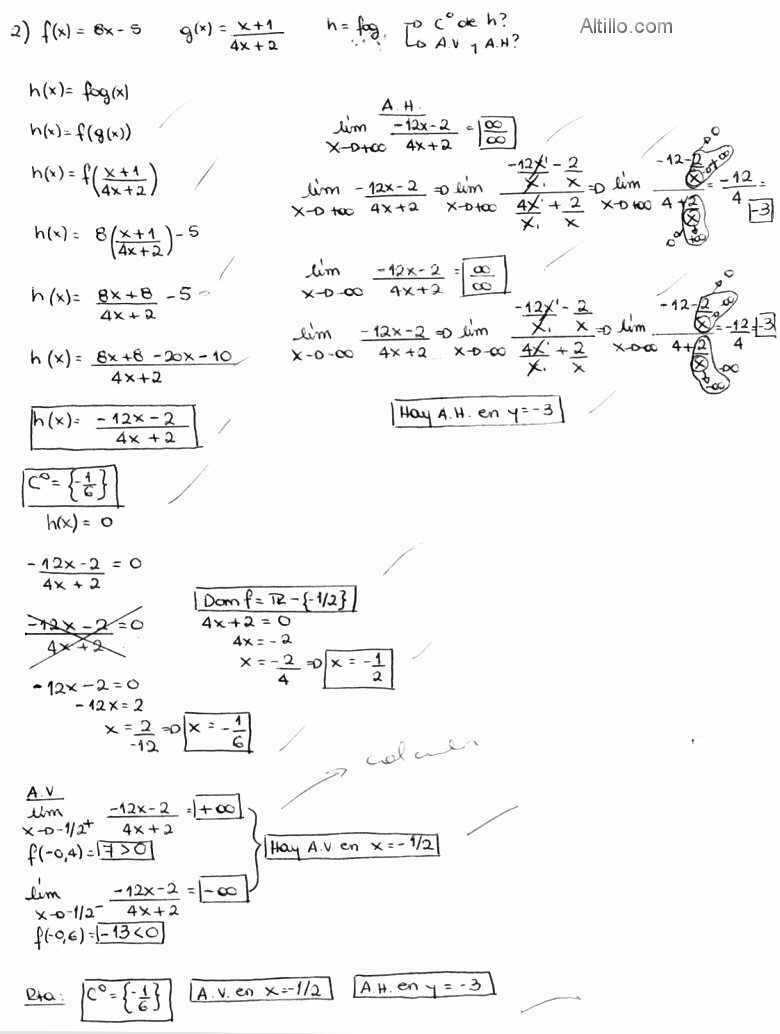 2) f(x) = 8x - 5 g(x) = x+1/4x+2 h = fog → C° de h? → A.V y A.H?
Altillo.com
h(x) = fog(x)
h(x) = f(g(x))
h(x) = f(x+1/4x+2)
h(x) = 8(x+1/4x+2) - 5
h(x) = 8x+8/4x+2 - 5
h(x) = 8x+8-20x-10/4x+2
h(x) = -12x-2/4x+2
C° = {-1/6}
h(x) = 0
-12x-2/4x+2 = 0
-12x-2/4x+2 = 0
-12x-2 = 0
-12x = 2
x = 2/-12 ⇒ x = -1/6
A.H.
lím x→+∞ -12x-2/4x+2 = ∞/∞
lím x→+∞ -12x-2/4x+2 ⇒ lím x→+∞ -12x/x - 2/x / 4x/x + 2/x ⇒ lím x→+∞ -12-2/x / 4+2/x = -12/4 = -3
lím x→-∞ -12x-2/4x+2 = ∞/∞
lím x→-∞ -12x-2/4x+2 ⇒ lím x→-∞ -12x/x - 2/x / 4x/x + 2/x ⇒ lím x→-∞ -12-2/x / 4+2/x = -12/4 = -3
Hay A.H. en y = -3
Dom f = R - {-1/2}
4x+2 = 0
4x = -2
x = -2/4 ⇒ x = -1/2
A.V
lím x→-1/2+ -12x-2/4x+2 = +∞
f(-0,4) = 7>0
lím x→-1/2- -12x-2/4x+2 = -∞
f(-0,6) = -13<0
Hay A.V en x = -1/2
Rta: C° = {-1/6} A.V. en x = -1/2 A.H. en y = -3